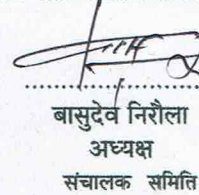 बासुदेव निरौला
अध्यक्ष
संचालक समिति